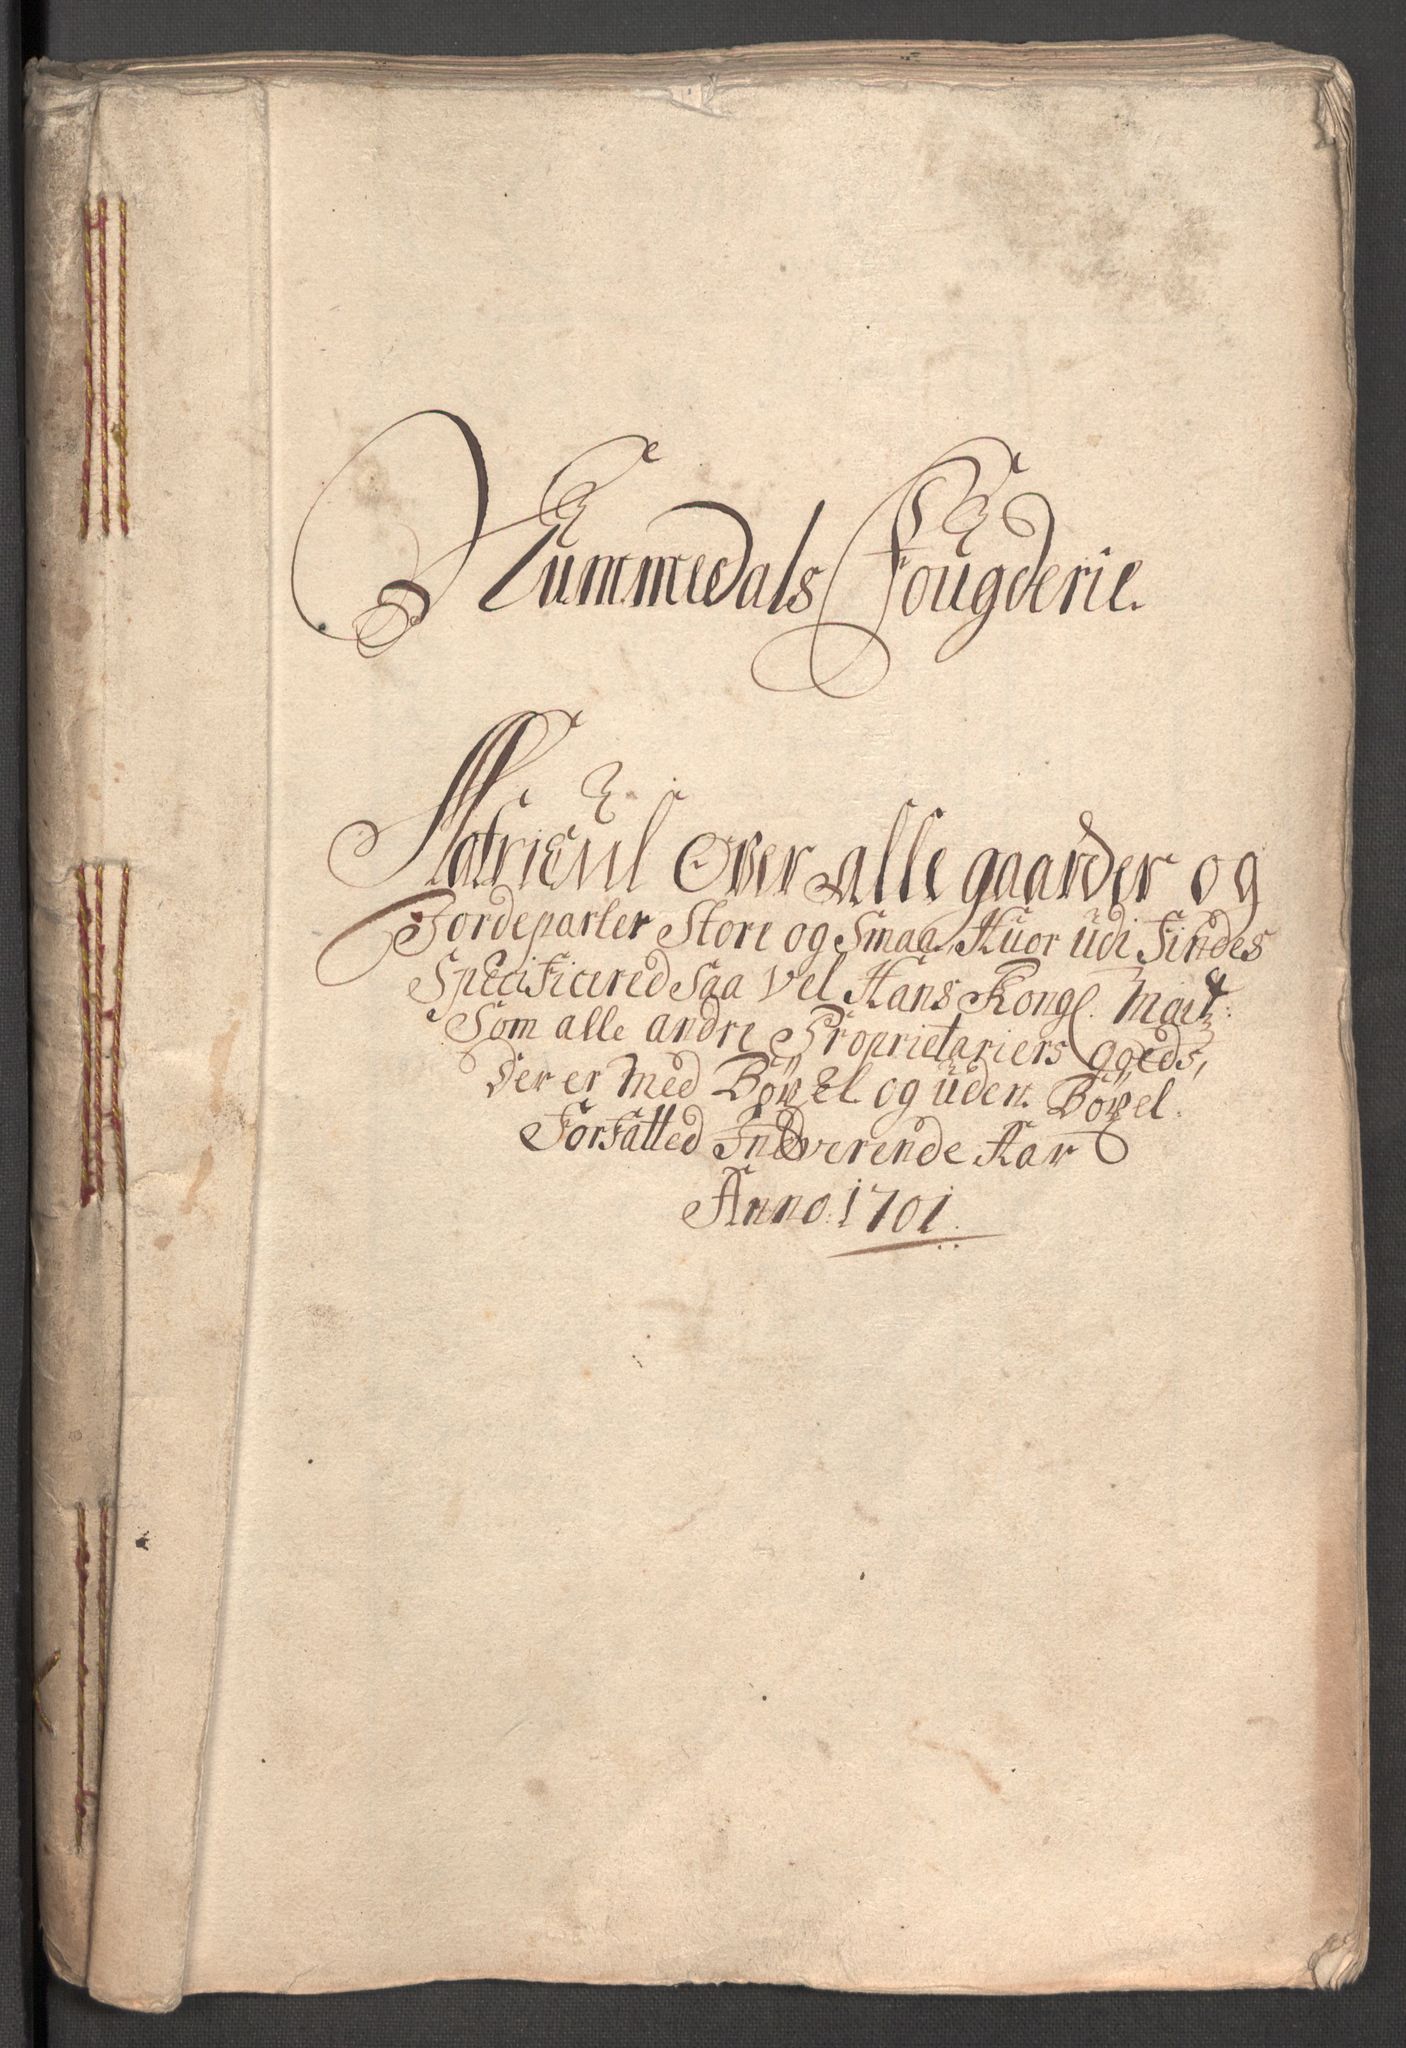 Nummedals Fougderie.
Matricul Over alle gaarder og
Jordeparter Store og Smaa Huor udi Findes
Specificered Saa Vel Hans Kongl. Maÿt:
Som alle andre Proprietariers goeds,
Der er Med Böxel og üden Böxel.
Forfatted Indverende Aar
Anno. 1701.